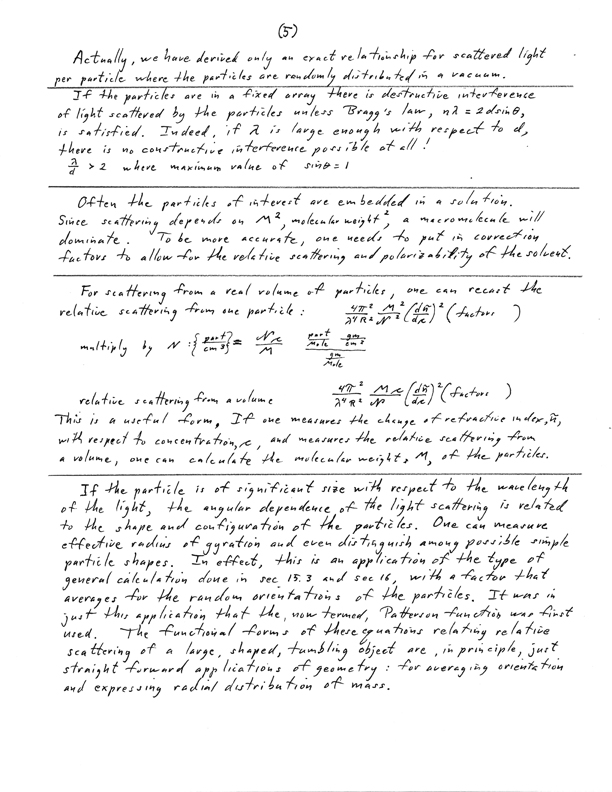 (5)
Actually, we have derived only an exact relationship for scattered light
per particle where the particles are randomly distributed in a vacuum.
If the particles are in a fixed array there is destructive interference
of light scattered by the particles unless Bragg's law, nλ = 2d sinθ,
is satisfied. Indeed, if λ is large enough with respect to d,
there is no constructive interference possible at all!
λ/d > 2 where maximum value of sinθ = 1
Often the particles of interest are embedded in a solution.
Since scattering depends on M², molecular weight², a macromolecule will
dominate. To be more accurate, one needs to put in correction
factors to allow for the relative scattering and polarizability of the solvent.
For scattering from a real volume of particles, one can recast the
relative scattering from one particle: 4π²/λ⁴R² M²/N² (dñ/dc)² (factors )
multiply by N : {part/cm³} = Nc/M part/Mole gm/cm³ / gm/Mole
relative scattering from a volume 4π²/λ⁴R² Mc/N (dñ/dc)² (factors )
This is a useful form. If one measures the change of refractive index, ñ,
with respect to concentration, c, and measures the relative scattering from
a volume, one can calculate the molecular weight, M, of the particles.
If the particle is of significant size with respect to the wavelength
of the light, the angular dependence of the light scattering is related
to the shape and configuration of the particles. One can measure
effective radius of gyration and even distinguish among possible simple
particle shapes. In effect, this is an application of the type of
general calculation done in sec 15.3 and sec 16, with a factor that
averages for the random orientations of the particles. It was in
just this application that the, now termed, Patterson function was first
used. The functional forms of these equations relating relative
scattering of a large, shaped, tumbling object are, in principle, just
straight forward applications of geometry: for averaging orientation
and expressing radial distribution of mass.